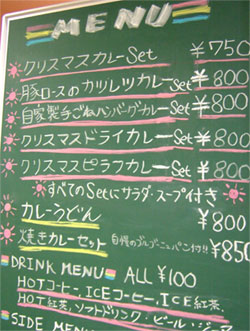 MENU
クリスマスカレーSet ¥750
豚ロースのカツレツカレーSet ¥800
自家製手ごねハンバーグカレーSet ¥800
クリスマスドライカレーSet ¥800
クリスマスピラフカレーSet ¥800
すべてのSetにサラダ・スープ付き
カレーうどん ¥800
焼きカレーセット 自慢の パン付!! ¥850
DRINK MENU ALL ¥100
HOTコーヒー, ICEコーヒー, ICE紅茶,
HOT紅茶, ソフトドリンク・ビール・
SIDE MENU